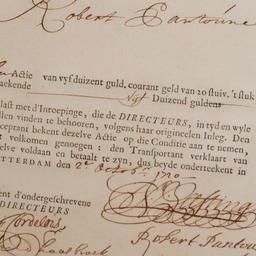 Robert Santoúne
Actie van vyf duizent guld, courant geld van 20 stuiv. 't stuk
akende vyf Duizend guldens
last met d'Inroepinge, die de DIRECTEURS, in tyd en wyle
llen vinden te behooren, volgens haar origineelen Inleg. Den
cceptant bekent dezelve Actie op die Conditie aan te nemen,
t volkomen genoegen: den Transportant verklaart van
elve voldaan en betaalt te zyn, dus beyde onderteekent in
TTERDAM den 2e Octobr 1720
ent d'ondergeschrevene
DIRECTEURS
Robert Santou